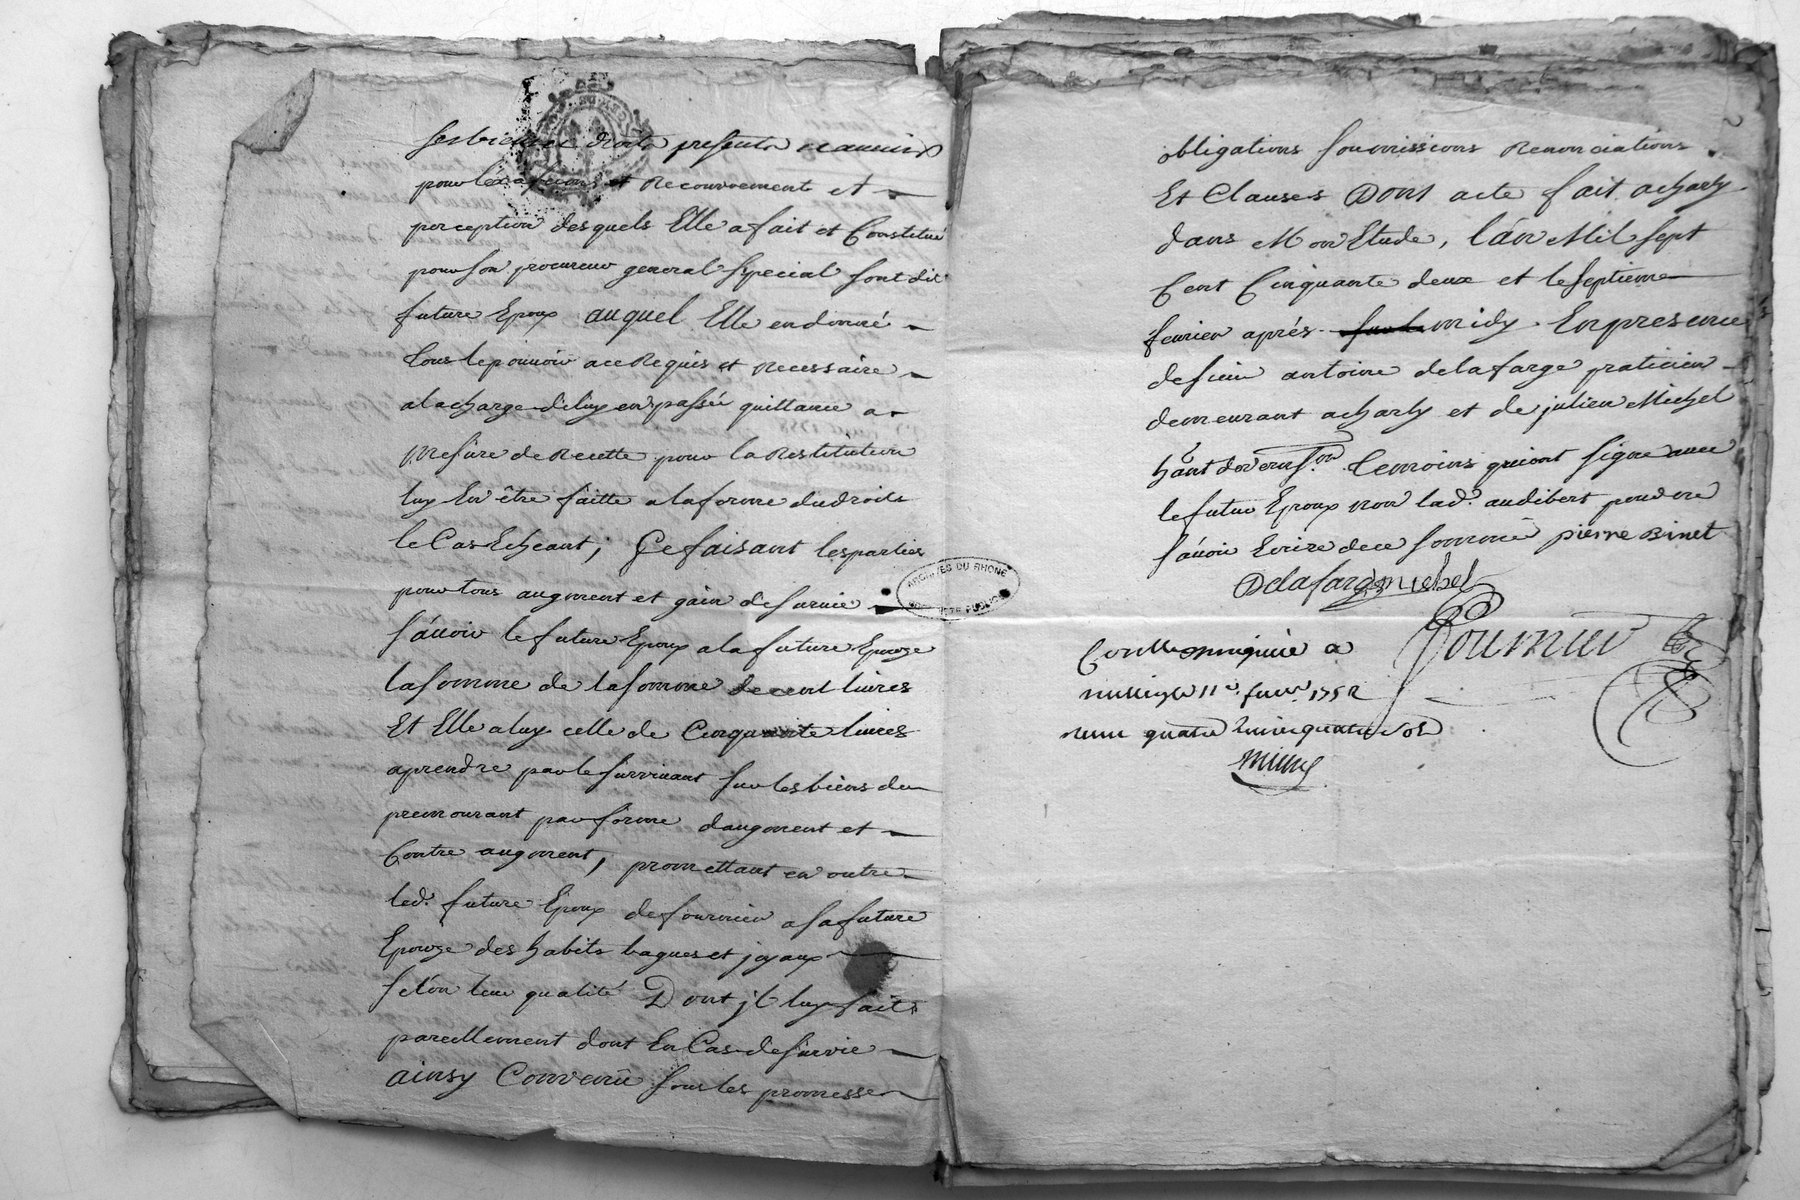 ses biens et droits presents et auenirs
pour l'exactions et Recouurement et
perception desquels Elle a fait et Constitué
pour son procureur general special sont dit
future Epoux auquel Elle en donné
tous le pouuoir a ce Requis et necessaire
a la charge d'eluy en passée quittance a
mesure de Recette pour la Restitution
luy En être faitte a la forme du droits
le Cas Echeant, Ce faisant les parties
pour tous augment et gain de suruie
sauoir le future Epoux a la future Epouze
la somme de la somme de cent liures
Et Elle a luy celle de Cinquante liures
a prendre par le surviuant sur les biens du
premourant par forme daugment et
Contre augment, promettant en outre
led. future Epoux de fournir a sa future
Epouze des habits bagues et joyaux
selon leur qualité Dont jl luy faits
pareillement dont En Cas de survie
ainsy Convenû sous les promesses
ARCHIVES DU RHONE
obligations soumissions Renonciations
Et Clauses Dont acte fait a charly
dans Mon Etude, l'an Mil sept
Cent Cinquante deux et le septieme
feurier aprés midy En presence
de sieur antoine delafarge praticien
demeurant a charly et de julien Michel
témoins qui ont signe auec
le futur Epoux non lad. audibert pour ne
sauoir Ecrire de ce sommé pierre Binet
Delafarge michel
Fournier
Contt a
millery le 11e. feur. 1752
Receu quatre liures quatre sols